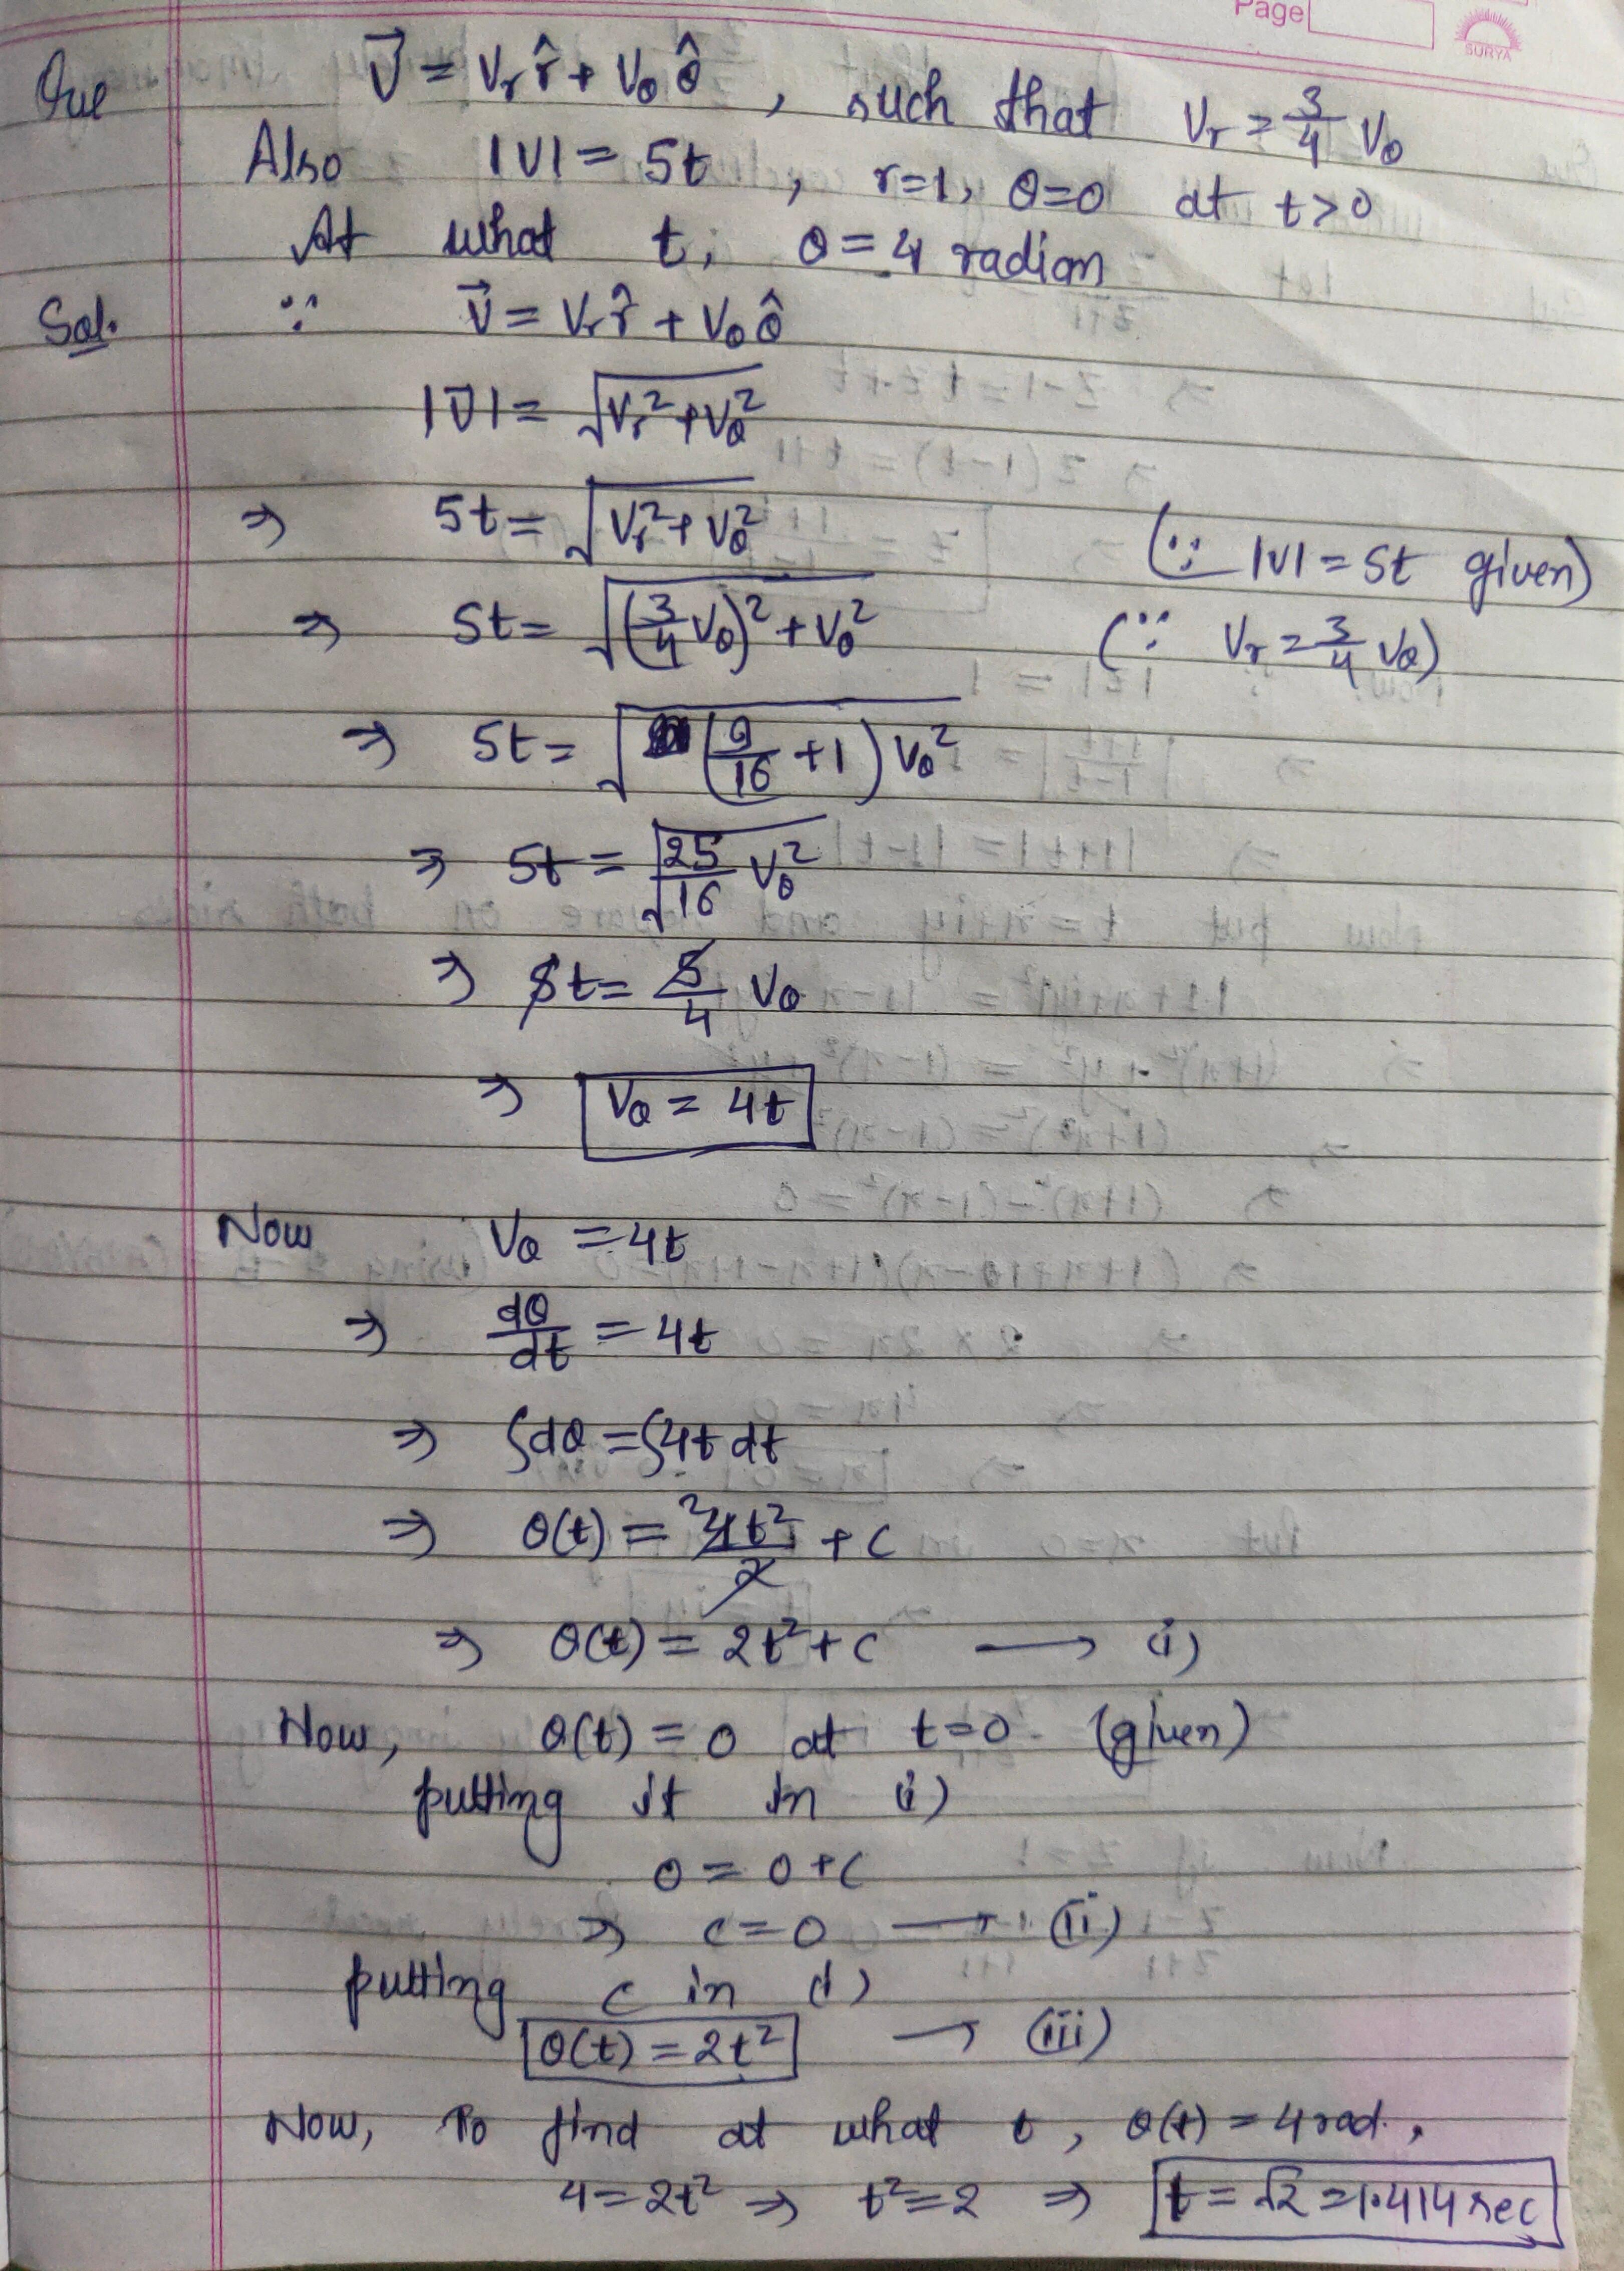 Page
SURYA
Que V⃗ = Vr r̂ + Vθ θ̂ , such that Vr = 3/4 Vθ
Also |V| = 5t , r=1, θ=0 at t>0
At what t, θ = 4 radian
Sol. ∵ V⃗ = Vr r̂ + Vθ θ̂
|V⃗| = √(Vr² + Vθ²)
⇒ 5t = √(Vr² + Vθ²) (∵ |V| = 5t given)
⇒ 5t = √((3/4 Vθ)² + Vθ²) (∵ Vr = 3/4 Vθ)
⇒ 5t = √((9/16 + 1) Vθ²)
⇒ 5t = √(25/16 Vθ²)
⇒ 5t = 5/4 Vθ
⇒ Vθ = 4t
Now Vθ = 4t
⇒ dθ/dt = 4t
⇒ ∫dθ = ∫4t dt
⇒ θ(t) = 2 4t²/2 + C
⇒ θ(t) = 2t² + C → (i)
Now, θ(t) = 0 at t=0 (given)
putting it in (i)
0 = 0 + C
⇒ C = 0 → (ii)
putting C in (i)
θ(t) = 2t² → (iii)
Now, to find at what t, θ(t) = 4 rad.,
4 = 2t² ⇒ t² = 2 ⇒ t = √2 = 1.414 sec